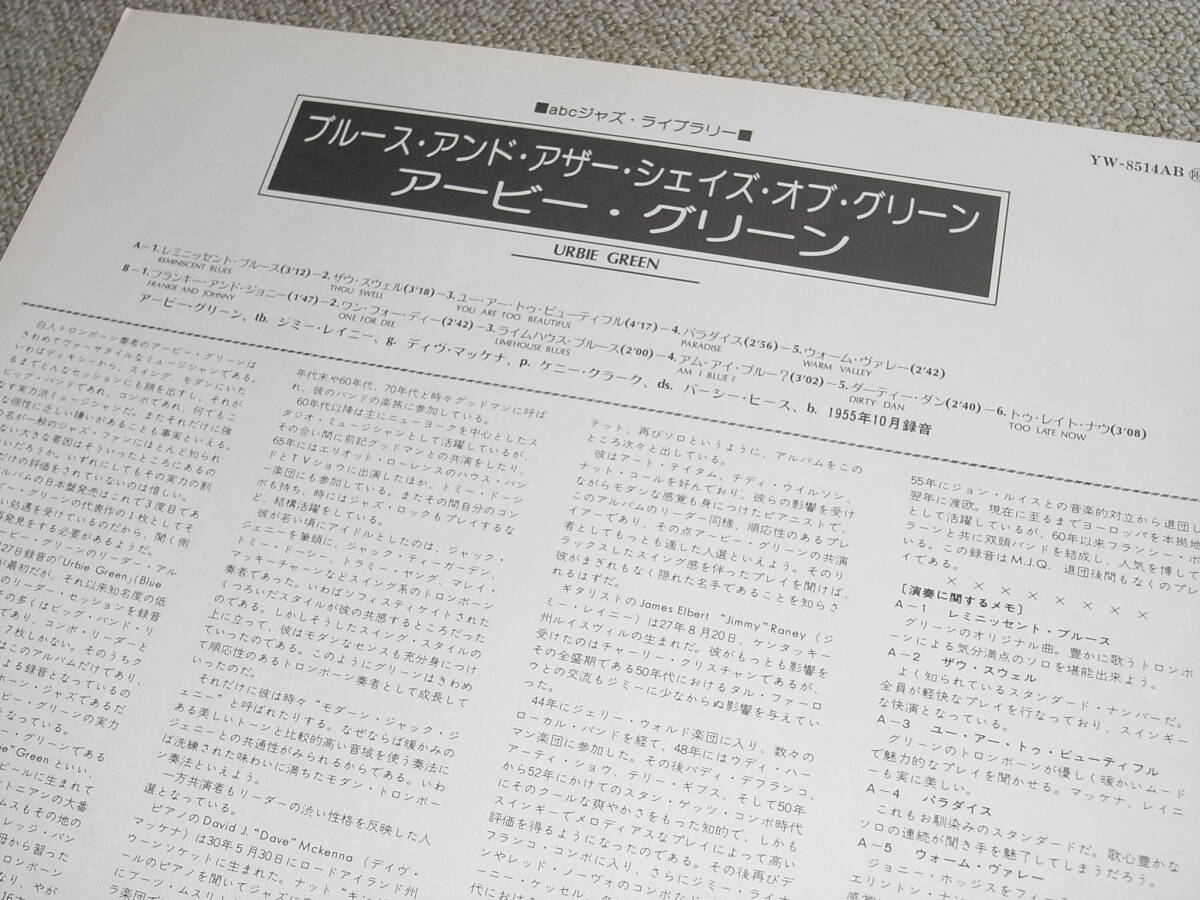 ■abcジャズ・ライブラリー■
YW-8514AB
ブルース・アンド・アザー・シェイズ・オブ・グリーン
アービー・グリーン
URBIE GREEN
A−1.レミニッセント・ブルース(3'12)−2.ザウ・スウェル(3'18)−3.ユー・アー・トゥ・ビューティフル(4'17)−4.パラダイス(2'56)−5.ウォーム・ヴァレー(2'42)
REMINISCENT BLUES THOU SWELL YOU ARE TOO BEAUTIFUL PARADISE WARM VALLEY
B−1.フランキー・アンド・ジョニー(1'47)−2.ワン・フォー・ディー(2'42)−3.ライムハウス・ブルース(2'00)−4.アム・アイ・ブルー?(3'02)−5.ダーティー・ダン(2'40)−6.トゥ・レイト・ナウ(3'08)
FRANKIE AND JOHNNY ONE FOR DEE LIMEHOUSE BLUES AM I BLUE? DIRTY DAN TOO LATE NOW
アービー・グリーン、tb. ジミー・レイニー、g. ディヴ・マッケナ、p. ケニー・クラーク、ds. パーシー・ヒース、b. 1955年10月録音
白人トロンボーン奏者のアービー・グリーンは
きわめてヴァーサタイルなミュージシャンである。
いわばディキシーから、スイング、モダンにいた
るまでどんなセッションにも顔を出すし、それが
ビッグ・バンドであれ、コンボであれ、何でもこ
なす実力派ミュージシャンだ。またそれだけに強
な個性に乏しい嫌いがあることも事実といえる。
の名が一般のジャズ・ファンにほとんど知られ
ない大きな要因はそういったところにあるの
いだろうか。いずれにしてもその実力の割
だけの評価をされていないのは惜しい。
ルバムの日本盤発売はこれで3度目であ
ビー・グリーンの代表作の1枚としてそ
い処遇を受けているのだから、聞く側
再発見をする必要があるようだ。
ビー・グリーンのリーダー・アル
27日録音の「Urbie Green」(Blue
が最初だが、それ以来知名度の低
のリーダー・セッションを録音
その多くはビッグ・バンド・リ
であり、コンボ・リーダーと
7枚しかない。そのうちク
はこのアルバムだけであり、
よる録音となっているの
ボーン・ジャズであるだ
ビー・グリーンの実力
となっている。
ー・グリーンである
ie"Greenといい、
ビールに生まれて
トニアンの大番
ムスもその地の
レッジ・バン
母から習った
ロンボーン
なり、やが
年代末や60年代、70年代と時々グッドマンに呼ば
れ、彼のバンドの楽旅に参加している。
60年代以降は主にニューヨークを中心としたス
タジオ・ミュージシャンとして活躍しているが、
その合い間に前記グッドマンとの共演をしたり、
65年にはエリオット・ローレンスのハウス・バン
ドとTVショウに出演したほか、トミー・ドーシ
ー楽団にも参加している。またその間自分のコン
ボも持ち、時にはジャズ・ロックもプレイするな
ど、結構活躍をしている。
彼が若い頃にアイドルとしたのは、ジャック・
ジェニーを筆頭に、ジャック・ティーガーデン、
トミー・ドーシー、トラミー・ヤング、マレイ・
マッキーチャーンなどスイング系のトロンボーン
奏者であった。いわばソフィスティケイトされた
くつろいだスタイルが彼の共感するところだった
のである。しかしそうしたスイング・スタイルの
上に立って、彼はモダンなセンスも充分身につけ
ていったのである。このようにグリーンはきわめ
て順応性のあるトロンボーン奏者として成長して
いったのだ。
それだけに彼は時々“モダーン・ジャック・ジ
ェニー”と呼ばれたりする。なぜならば暖かみの
ある美しいトーンと比較的高い音域を使う奏法に
ジェニーとの共通性がみられるからである。いわ
ば洗練された味わいに満ちたモダン・トロンボー
ン奏法といえよう。
一方共演者もリーダーの渋い性格を反映した人
選となっている。
ピアノのDavid J. “Dave” Mckenna (デイヴ・
マッケナ)は30年5月30日にロードアイランド州
ウーンソケットに生まれた。ナット“キン
ールのピアノを聞いてジャズに
にブーツ・ムスリ
ラ楽団で
テット、再びソロというように、アルバムをこの
ところ次々と出している。
彼はアート・テイタム、テディ・ウイルソン、
ナット・コールを好んでおり、彼らの影響を受け
ながらモダンな感覚も身につけたピアニストで、
このアルバムのリーダー同様、順応性のあるプレ
イアーであり、その点アービー・グリーンの共演
者としてもっとも適した人選といえよう。そのリ
ラックスしたスイング感を伴ったプレイを聞けば、
彼がまぎれもなく隠れた名手であることを知らさ
れるはずだ。
ギタリストのJames Elbert “Jimmy” Raney (ジ
ミー・レイニー)は27年8月20日、ケンタッキー
州ルイスヴィルの生まれだ。彼がもっとも影響を
受けたのはチャーリー・クリスチャンであるが、
その全盛期である50年代におけるタル・ファーロ
ウとの交流もジミーに少なからぬ影響を与えてい
った。
44年にジェリー・ウォルド楽団に入り、数々の
ローカル・バンドを経て、48年にはウディ・ハー
マン楽団に参加した。その後バディ・デフランコ、
アーティ・ショウ、テリー・ギブス、そして50年
から52年にかけてのスタン・ゲッツ・コンボ時代
にそのクールな爽やかさをもった知的で、しかも
スインギーでメロディアスなプレイによって高い
評価を得るようになったのである。その後再びデ
フランコ・コンボに入り、さらにジミー・ライナ
ンやレッド・ノーヴォのコンボな
ーニー・ケッセル、
代における
55年にジョン・ルイスとの音楽的対立から退団し
翌年に渡欧。現在に至るまでヨーロッパを本拠地
として活躍しているが、60年以来フランシー・ボ
ラーンと共に双頭バンドを結成し、人気を博して
いる。この録音はM.J.Q. 退団後間もなくのプレ
イである。
× × × × × × × ×
[演奏に関するメモ]
A−1 レミニッセント・ブルース
グリーンのオリジナル曲。豊かに歌うトロンボ
ーンによる気分満点のソロを堪能出来よう。
A−2 ザウ・スウェル
よく知られているスタンダード・ナンバーだ。
全員が軽快なプレイを行なっており、スインギー
な快演となっている。
A−3 ユー・アー・トゥ・ビューティフル
グリーンのトロンボーンが優しく暖かいムード
で魅力的なプレイを聞かせる。マッケナ、レイニ
ーも実に美しい。
A−4 パラダイス
これもお馴染みのスタンダードだ。歌心豊かな
ソロの連続が聞き手を魅了してしまうだろう。
A−5 ウォーム・ヴァレー
ジョニー・ホッジスをフィー
エリントン・ナン